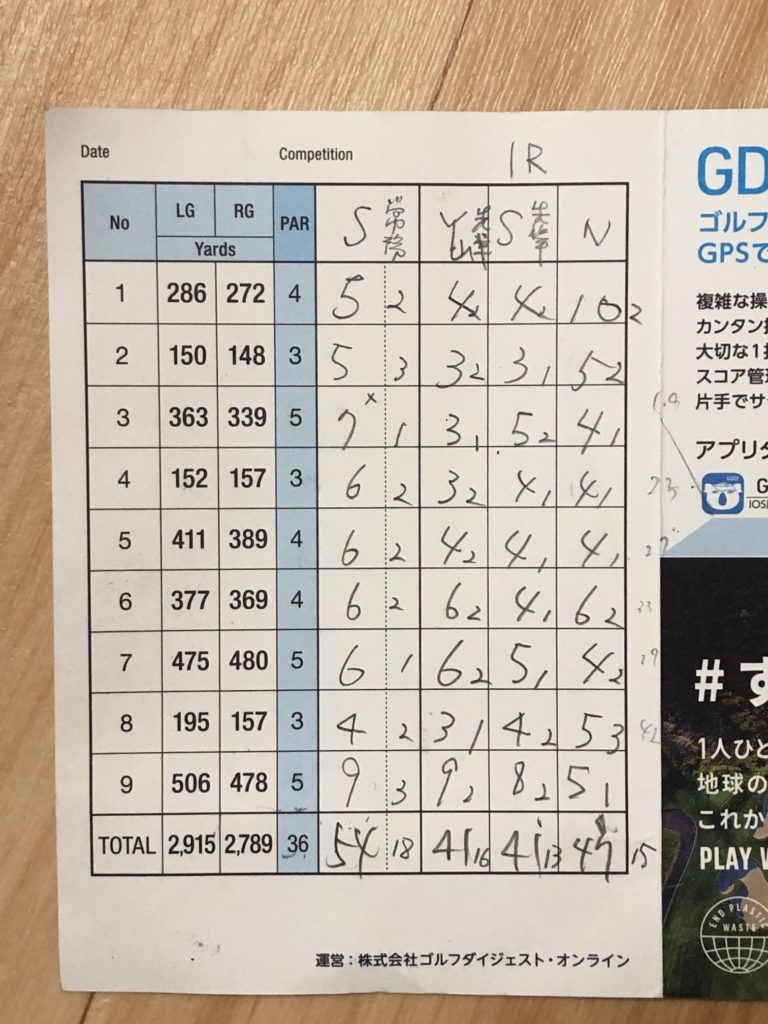 Date Competition 1R
No LG RG PAR S常務 Y山先輩 S先輩 N
Yards
1 286 272 4 5 2 4 2 4 2 10 2
2 150 148 3 5 3 3 2 3 1 5 2
3 363 339 5 7 x 1 3 1 5 2 4 1
4 152 157 3 6 2 3 2 4 1 4 1
5 411 389 4 6 2 4 2 4 1 4 1
6 377 369 4 6 2 6 2 4 1 6 2
7 475 480 5 6 1 6 2 5 1 4 2
8 195 157 3 4 2 3 1 4 2 5 3
9 506 478 5 9 3 9 2 8 2 5 1
TOTAL 2,915 2,789 36 54 18 41 16 41 13 47 15
運営：株式会社ゴルフダイジェスト・オンライン
GD
ゴルフ
GPSで
複雑な操
カンタン操
大切な1打
スコア管理
片手でサ
アプリダ
GDO
G
iOS
#す
1人ひと
地球の
これか
PLAY W
END PLASTIC
WASTE